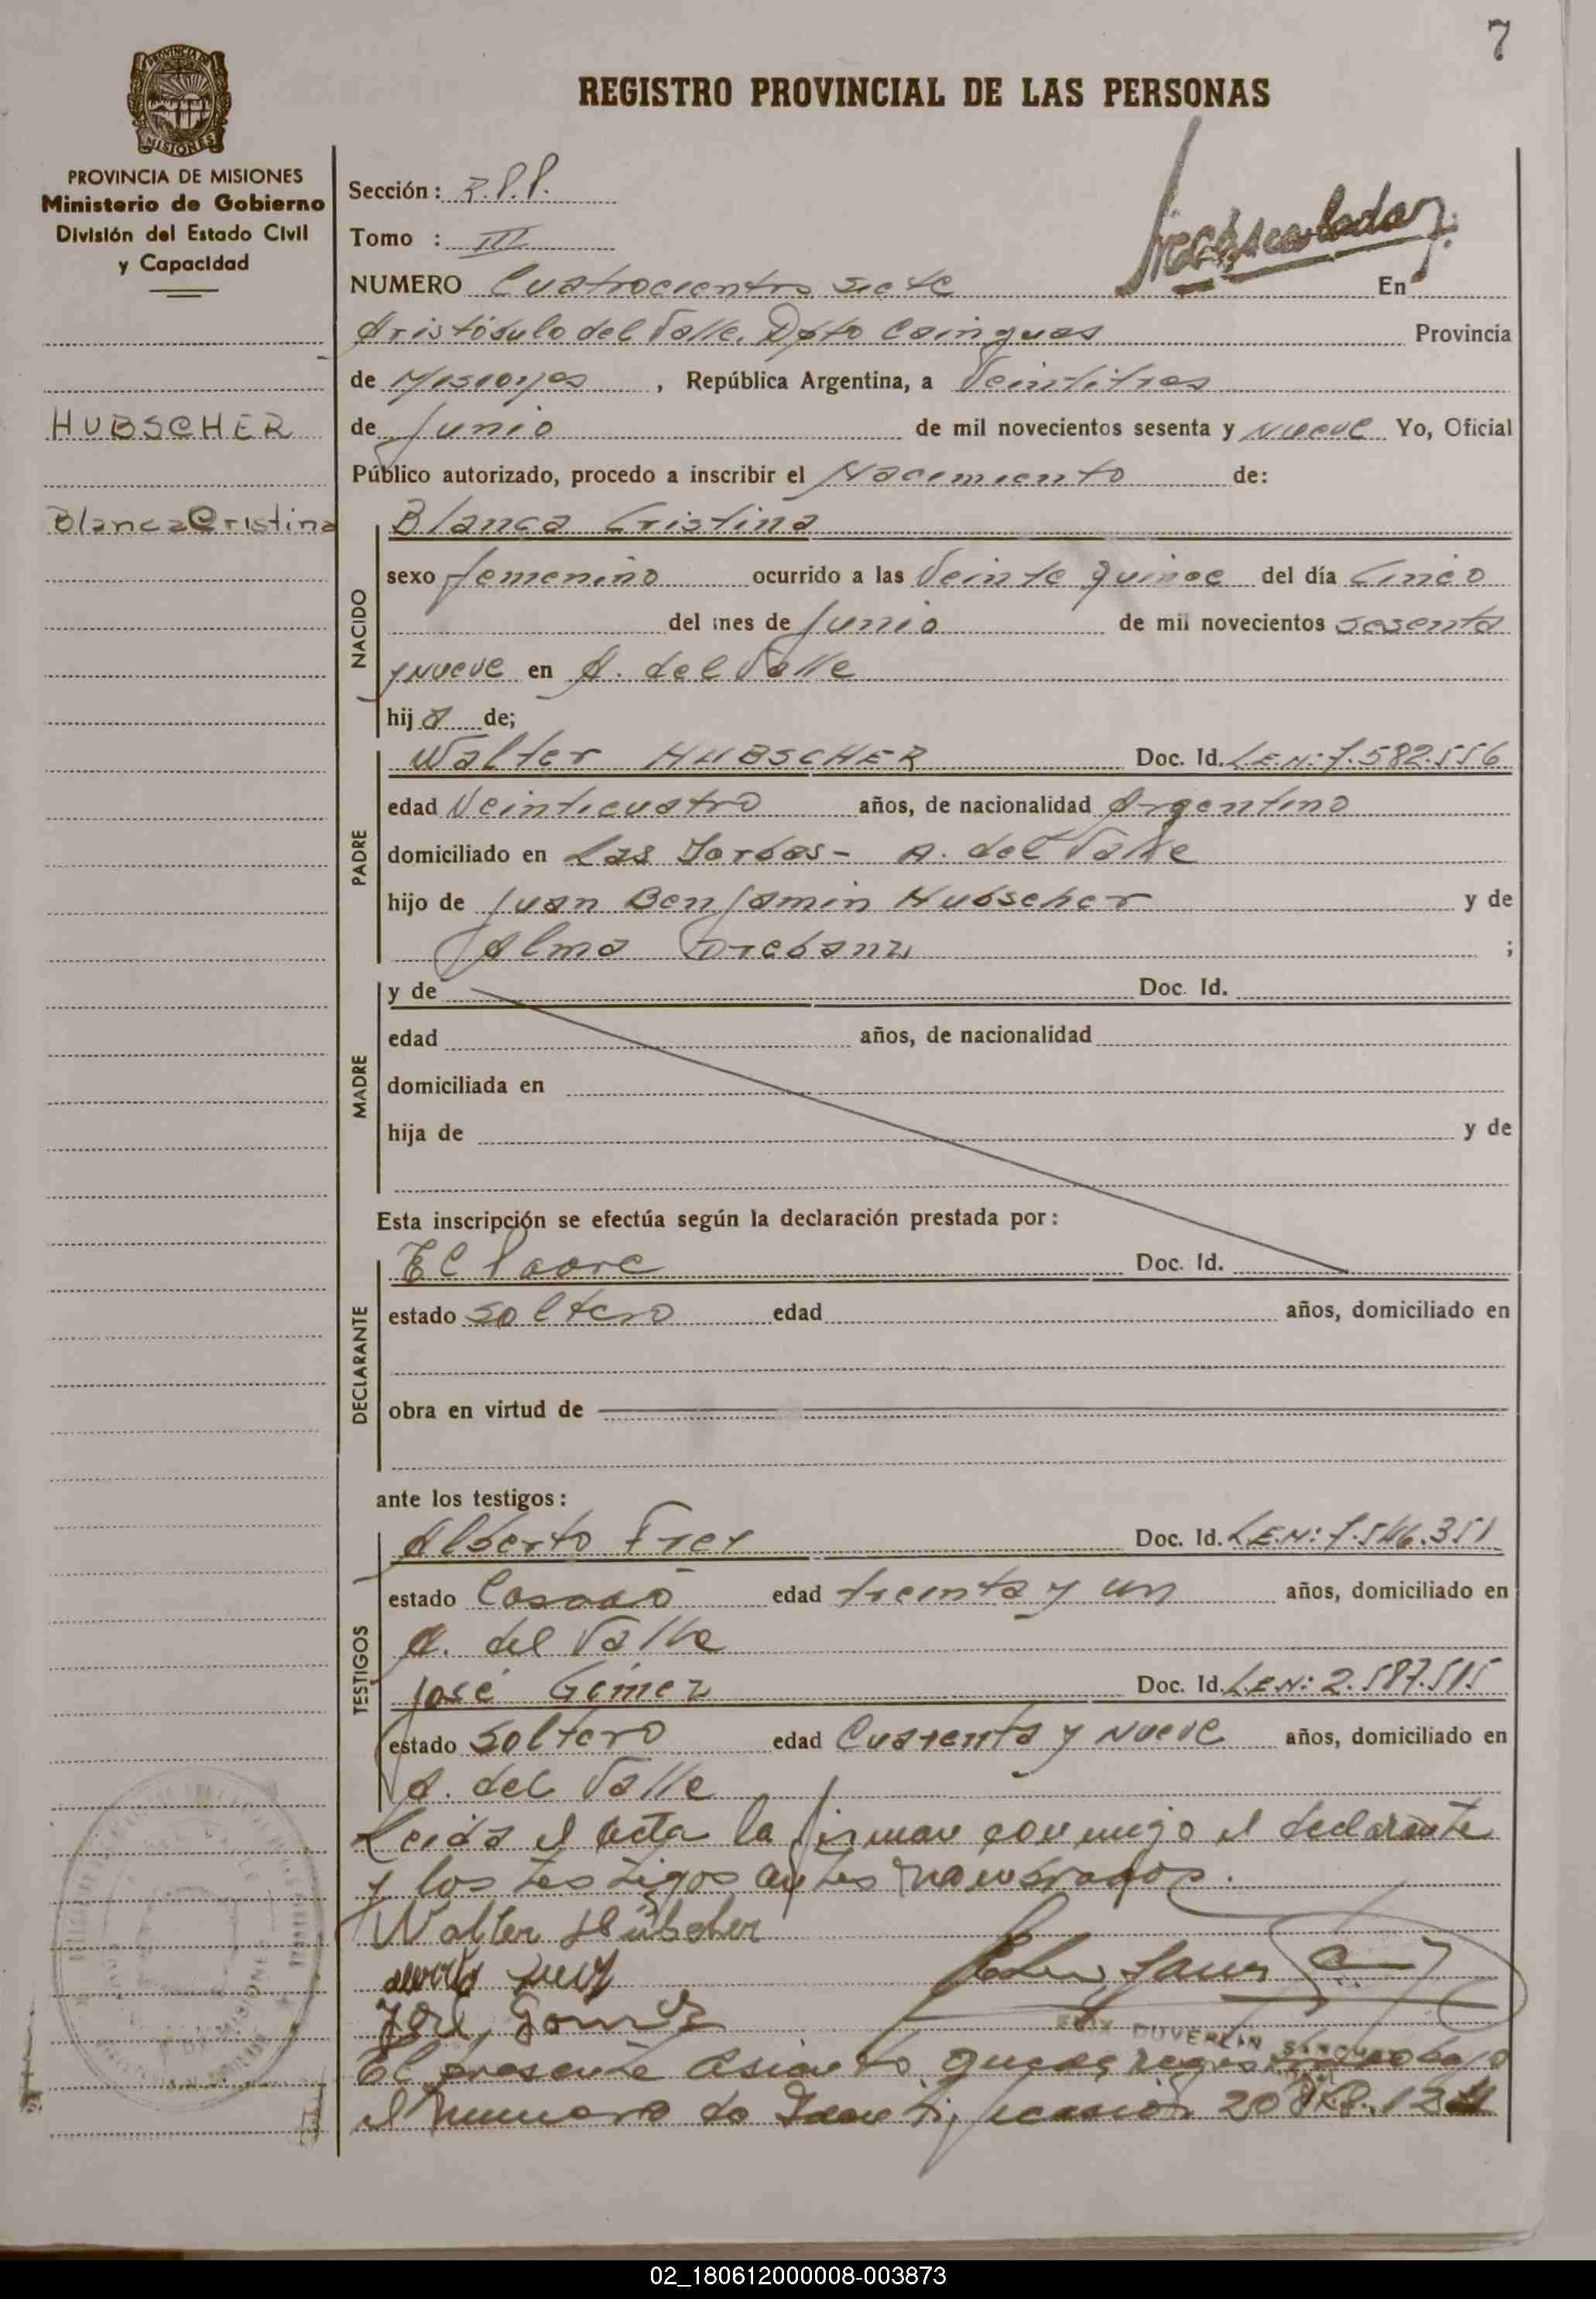 7
REGISTRO PROVINCIAL DE LAS PERSONAS
PROVINCIA DE MISIONES
Ministerio de Gobierno
División del Estado Civil
y Capacidad
HUBSCHER
Blanca Cristina
Sección:
Tomo : III
NUMERO Cuatrocientos siete En
Aristóbulo del Valle. Dpto Cainguas Provincia
de Misiones, República Argentina, a Veintitres
de Junio de mil novecientos sesenta y nueve Yo, Oficial
Público autorizado, procedo a inscribir el Nacimiento de:
NACIDO
Blanca Cristina
sexo femenino ocurrido a las Veinte quince del día Cinco
del mes de Junio de mil novecientos sesenta
y nueve en A. del Valle
hija de;
PADRE
Walter HUBSCHER Doc. Id. L.E.N: 7.582.556
edad Veinticuatro años, de nacionalidad Argentino
domiciliado en Las A. del Valle
hijo de Juan Benjamin Hubscher y de
Alma ;
MADRE
y de Doc. Id.
edad años, de nacionalidad
domiciliada en
hija de y de
Esta inscripción se efectúa según la declaración prestada por:
DECLARANTE
El Padre Doc. Id.
estado soltero edad años, domiciliado en
obra en virtud de
ante los testigos:
TESTIGOS
Alberto Frey Doc. Id. L.E.N: 7.546.351
estado Casado edad treinta y un años, domiciliado en
A. del Valle
José Gómez Doc. Id. L.E.N: 2.587.515
estado Soltero edad Cuarenta y nueve años, domiciliado en
A. del Valle
Leida el acta la firman conmigo el declarante
y los testigos antes nombrados.
Walter Hübscher
José Gomez
El presente asiento queda registrado bajo
el numero de Identificación 20
02_180612000008-003873